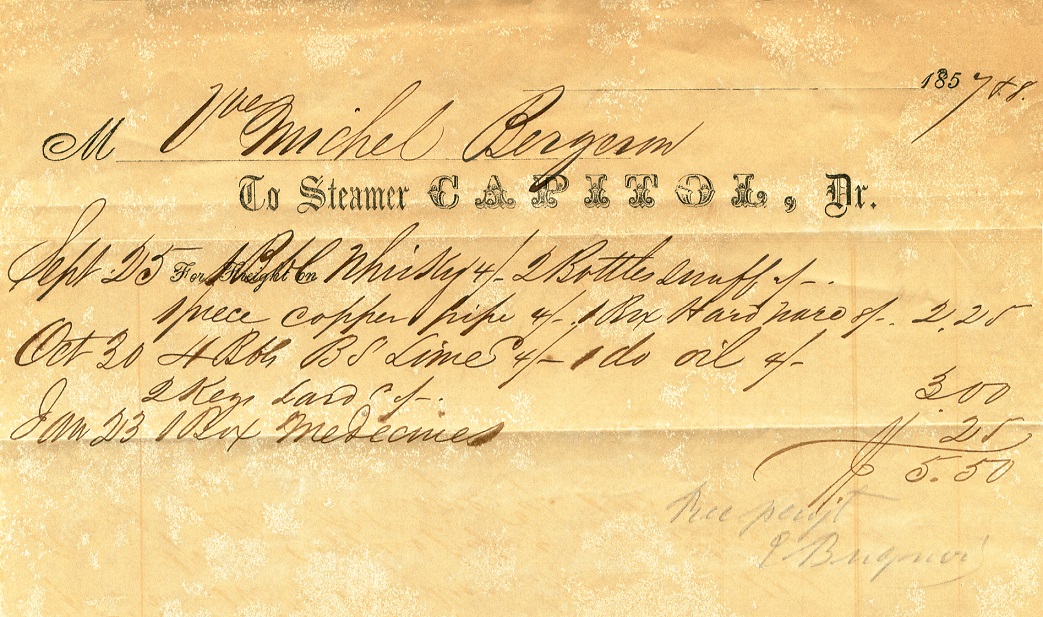 1857 & 8.
M Vve Michel Bergeron
To Steamer CAPITOL, Dr.
Sept. 25 For Freight on 1 Bbl Whisky 4/- 2 Bottles Snuff 2/-.
1 piece copper pipe 4/- 1 Box Hardware 8/-. 2.25
Oct 30 4 Bbls Lime 4/- 1 do oil 4/-
2 Kegs Lard 2/-. 3.00
Jan 23 1 Box Medecines 25
$ 5.50
Rec payt